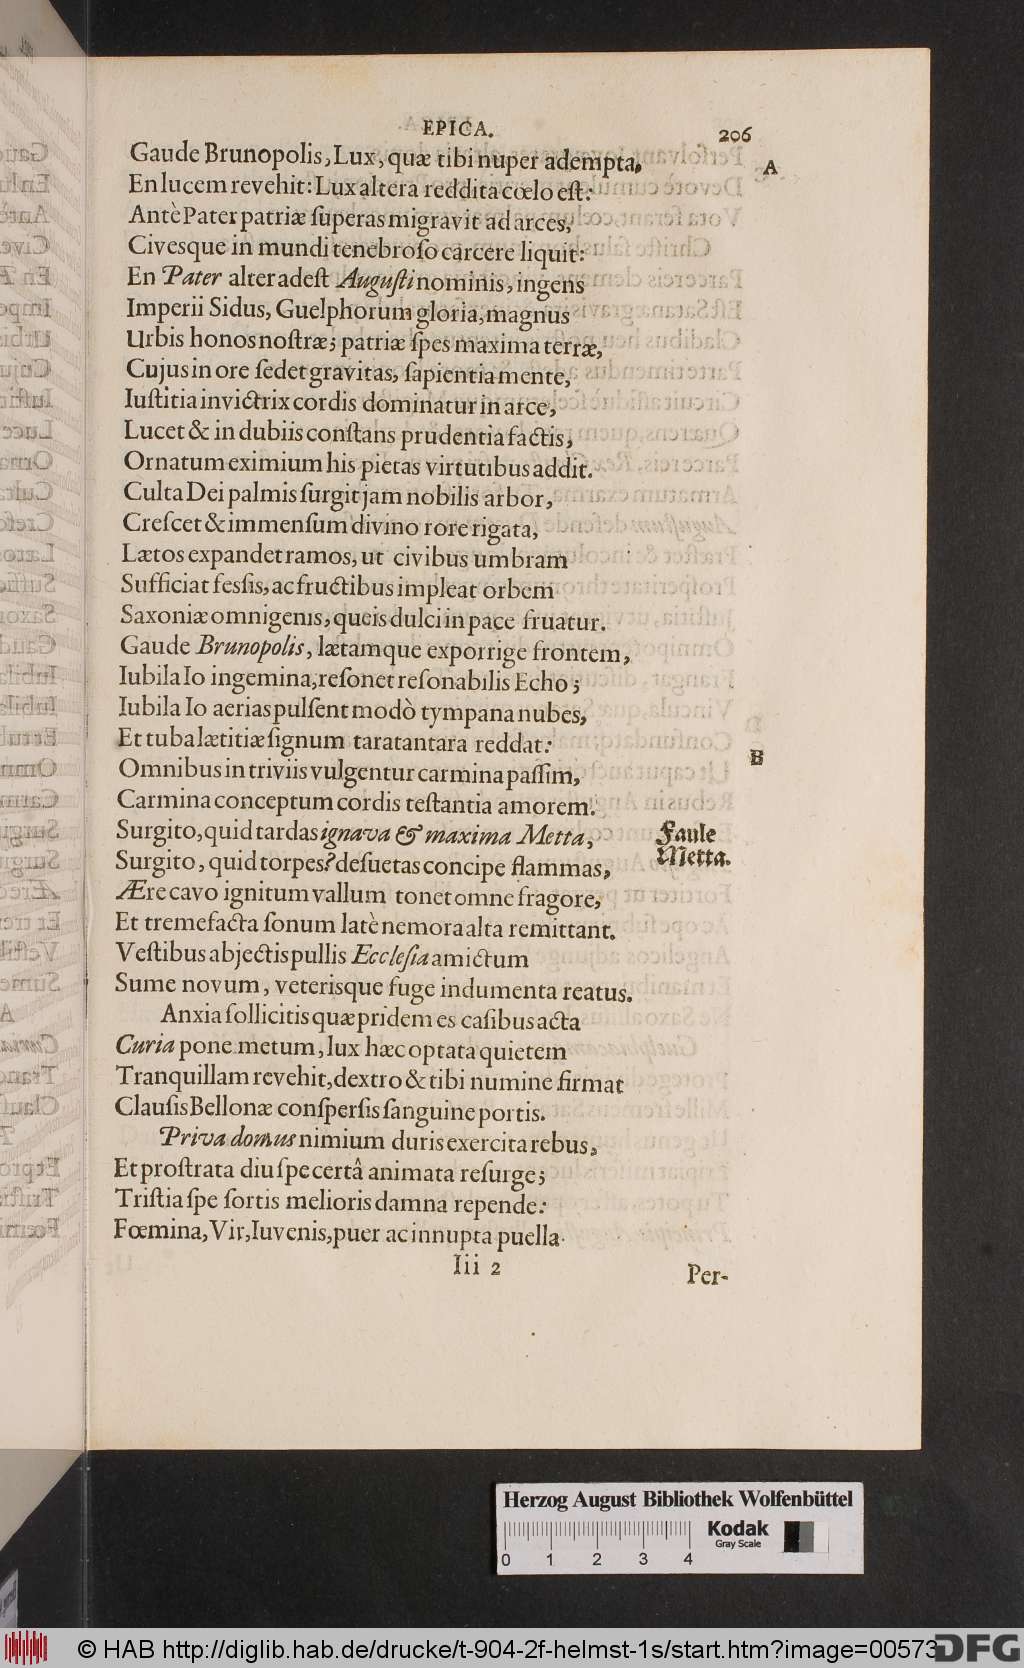 EPICA. 206
Gaude Brunopolis, Lux, quæ tibi nuper adempta, A
En lucem revehit: Lux altera reddita cœlo eſt:
Antè Pater patriæ ſuperas migravit ad arces,
Civesque in mundi tenebroſo carcere liquit:
En Pater alter adeſt Auguſti nominis, ingens
Imperii Sidus, Guelphorum gloria, magnus
Urbis honos noſtræ; patriæ ſpes maxima terræ,
Cujus in ore ſedet gravitas, ſapientia mente,
Iuſtitia invictrix cordis dominatur in arce,
Lucet & in dubiis conſtans prudentia factis,
Ornatum eximium his pietas virtutibus addit.
Culta Dei palmis ſurgit jam nobilis arbor,
Creſcet & immenſum divino rore rigata,
Lætos expandet ramos, ut civibus umbram
Sufficiat feſsis, ac fructibus impleat orbem
Saxoniæ omnigenis, queis dulci in pace fruatur.
Gaude Brunopolis, lætamque exporrige frontem,
Iubila Io ingemina, reſonet reſonabilis Echo;
Iubila Io aerias pulſent modò tympana nubes,
Et tuba lætitiæ ſignum taratantara reddat:
Omnibus in triviis vulgentur carmina paſſim, B
Carmina conceptum cordis teſtantia amorem.
Surgito, quid tardas ignava & maxima Metta, Faule
Surgito, quid torpes? deſuetas concipe flammas, Metta.
Ære cavo ignitum vallum tonet omne fragore,
Et tremefacta ſonum latè nemora alta remittant.
Veſtibus abjectis pullis Eccleſia amictum
Sume novum, veterisque fuge indumenta reatus.
Anxia ſollicitis quæ pridem es caſibus acta
Curia pone metum, lux hæc optata quietem
Tranquillam revehit, dextro & tibi numine firmat
Clauſis Bellonæ conſperſis ſanguine portis.
Priva domus nimium duris exercita rebus,
Et proſtrata diu ſpe certâ animata reſurge;
Triſtia ſpe ſortis melioris damna repende:
Fœmina, Vir, Iuvenis, puer ac innupta puella
Iii 2 Per-
Herzog August Bibliothek Wolfenbüttel
Kodak
Gray Scale
0 1 2 3 4
© HAB http://diglib.hab.de/drucke/t-904-2f-helmst-1s/start.htm?image=00573
DFG